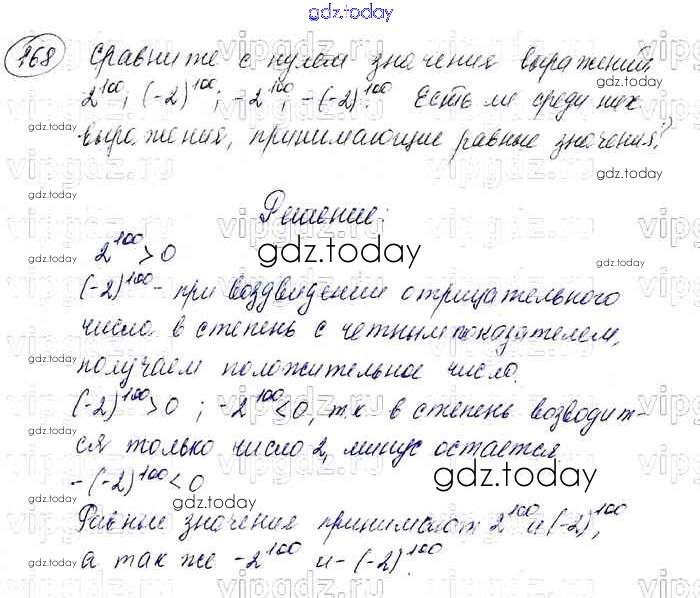 gdz.today
168 Сравните с нулем значения выражений
2^100; (-2)^100; -2^100; -(-2)^100. Есть ли среди них
выражения, принимающие равные значения?
Решение:
2^100 > 0
gdz.today
(-2)^100 - при воздвидении отрицательного
число в степень с четным показателем,
получаем положительное число.
(-2)^100 > 0 ; -2^100 < 0, т.к. в степень возводит-
ся только число 2, минус остается
-(-2)^100 < 0
gdz.today
Равные значение принимают 2^100 и (-2)^100,
а так же -2^100 и -(-2)^100.